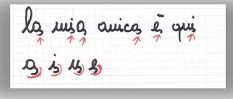 la mia amica è qui
a i u e